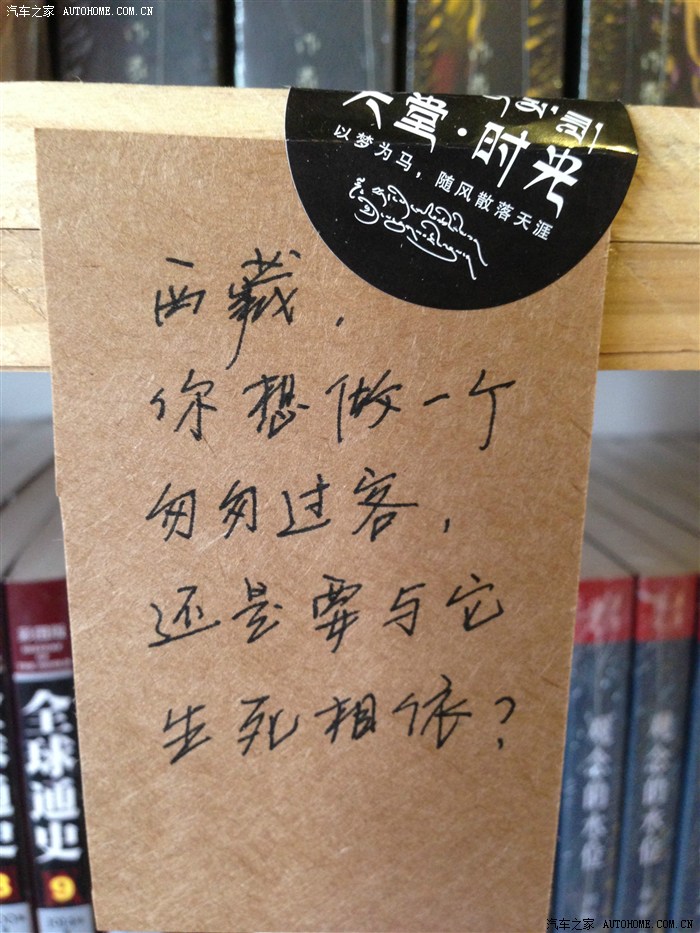 汽车之家 AUTOHOME.COM.CN
天堂·时光
以梦为马，随风散落天涯
西藏，
你想做一个
匆匆过客，
还是要与它
生死相依？
全球通史
9
全球通史
8
观念的水位
观念的水位
汽车之家 AUTOHOME.COM.CN